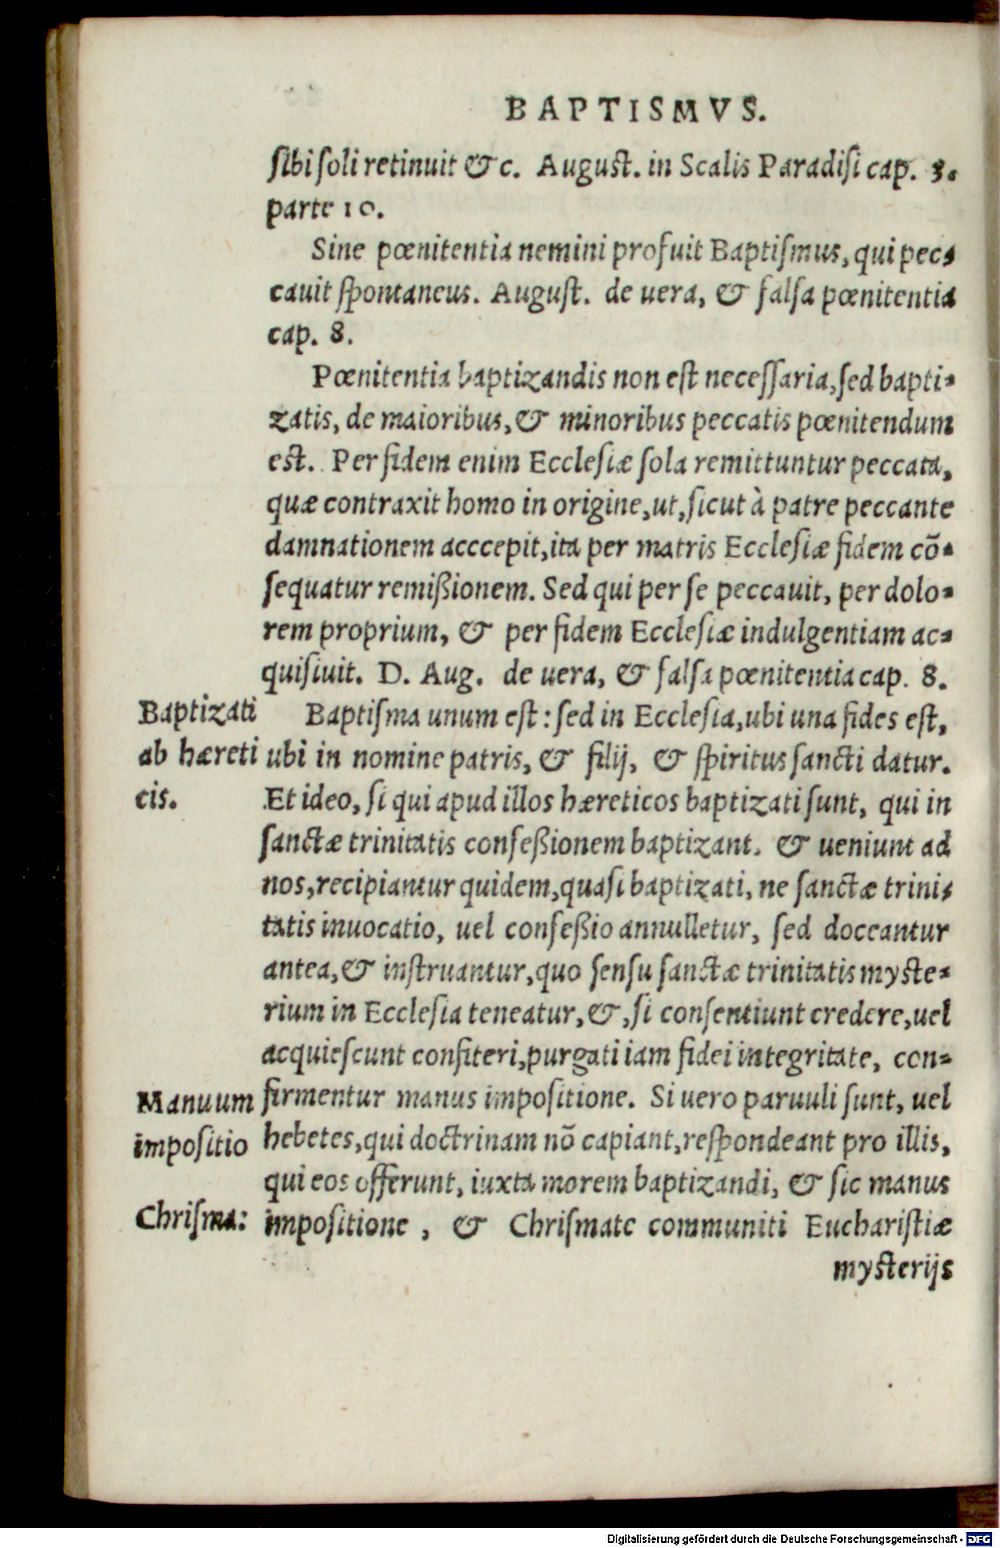 BAPTISMVS.
sibi soli retinuit & c. August. in Scalis Paradisi cap. 3.
parte 10.
Sine pœnitentia nemini profuit Baptismus, qui pec-
cauit spontaneus. August. de uera, & falsa pœnitentia
cap. 8.
Pœnitentia baptizandis non est necessaria, sed bapti-
zatis, de maioribus, & minoribus peccatis pœnitendum
est. Per fidem enim Ecclesiæ sola remittuntur peccata,
quæ contraxit homo in origine, ut, sicut à patre peccante
damnationem acccepit, ita per matris Ecclesiæ fidem cō-
sequatur remißionem. Sed qui per se peccauit, per dolo-
rem proprium, & per fidem Ecclesiæ indulgentiam ac-
quisiuit. D. Aug. de uera, & falsa pœnitentia cap. 8.
Baptizati
ab hæreti
cis.
Baptisma unum est: sed in Ecclesia, ubi una fides est,
ubi in nomine patris, & filij, & spiritus sancti datur.
Et ideo, si qui apud illos hæreticos baptizati sunt, qui in
sanctæ trinitatis confeßionem baptizant. & ueniunt ad
nos, recipiantur quidem, quasi baptizati, ne sanctæ trini-
tatis inuocatio, uel confeßio annulletur, sed doceantur
antea, & instruantur, quo sensu sanctæ trinitatis myste-
rium in Ecclesia teneatur, &, si consentiunt credere, uel
acquiescunt confiteri, purgati iam fidei integritate, con-
Manuum
impositio
firmentur manus impositione. Si uero paruuli sunt, uel
hebetes, qui doctrinam nō capiant, respondeant pro illis,
qui eos offerunt, iuxta morem baptizandi, & sic manus
Chrisma:
impositione, & Chrismate communiti Eucharistiæ
mysterijs
Digitalisierung gefördert durch die Deutsche Forschungsgemeinschaft - DFG